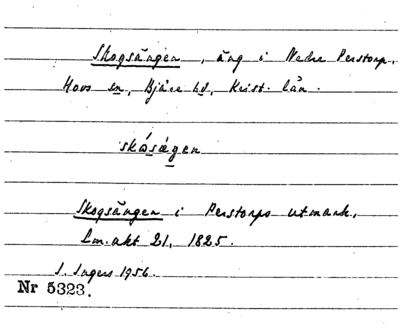 Skogsängen, äng i Nedre Perstorp,
Hovs sn, Bjäre hd, Krist. län.
skåsægen
Skogsängen i Perstorps utmark,
Lm. akt 21, 1825.
I. Ingers 1956.
Nr 5323.